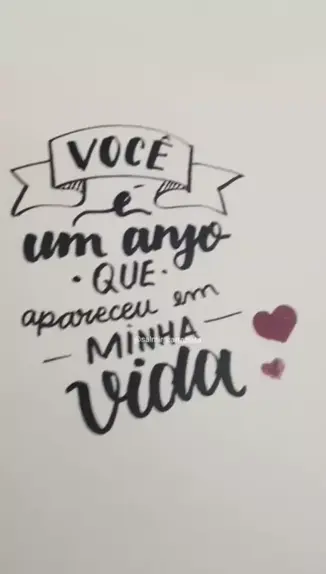 VOCÊ
é
um anjo
• QUE •
apareceu em
— MINHA —
vida